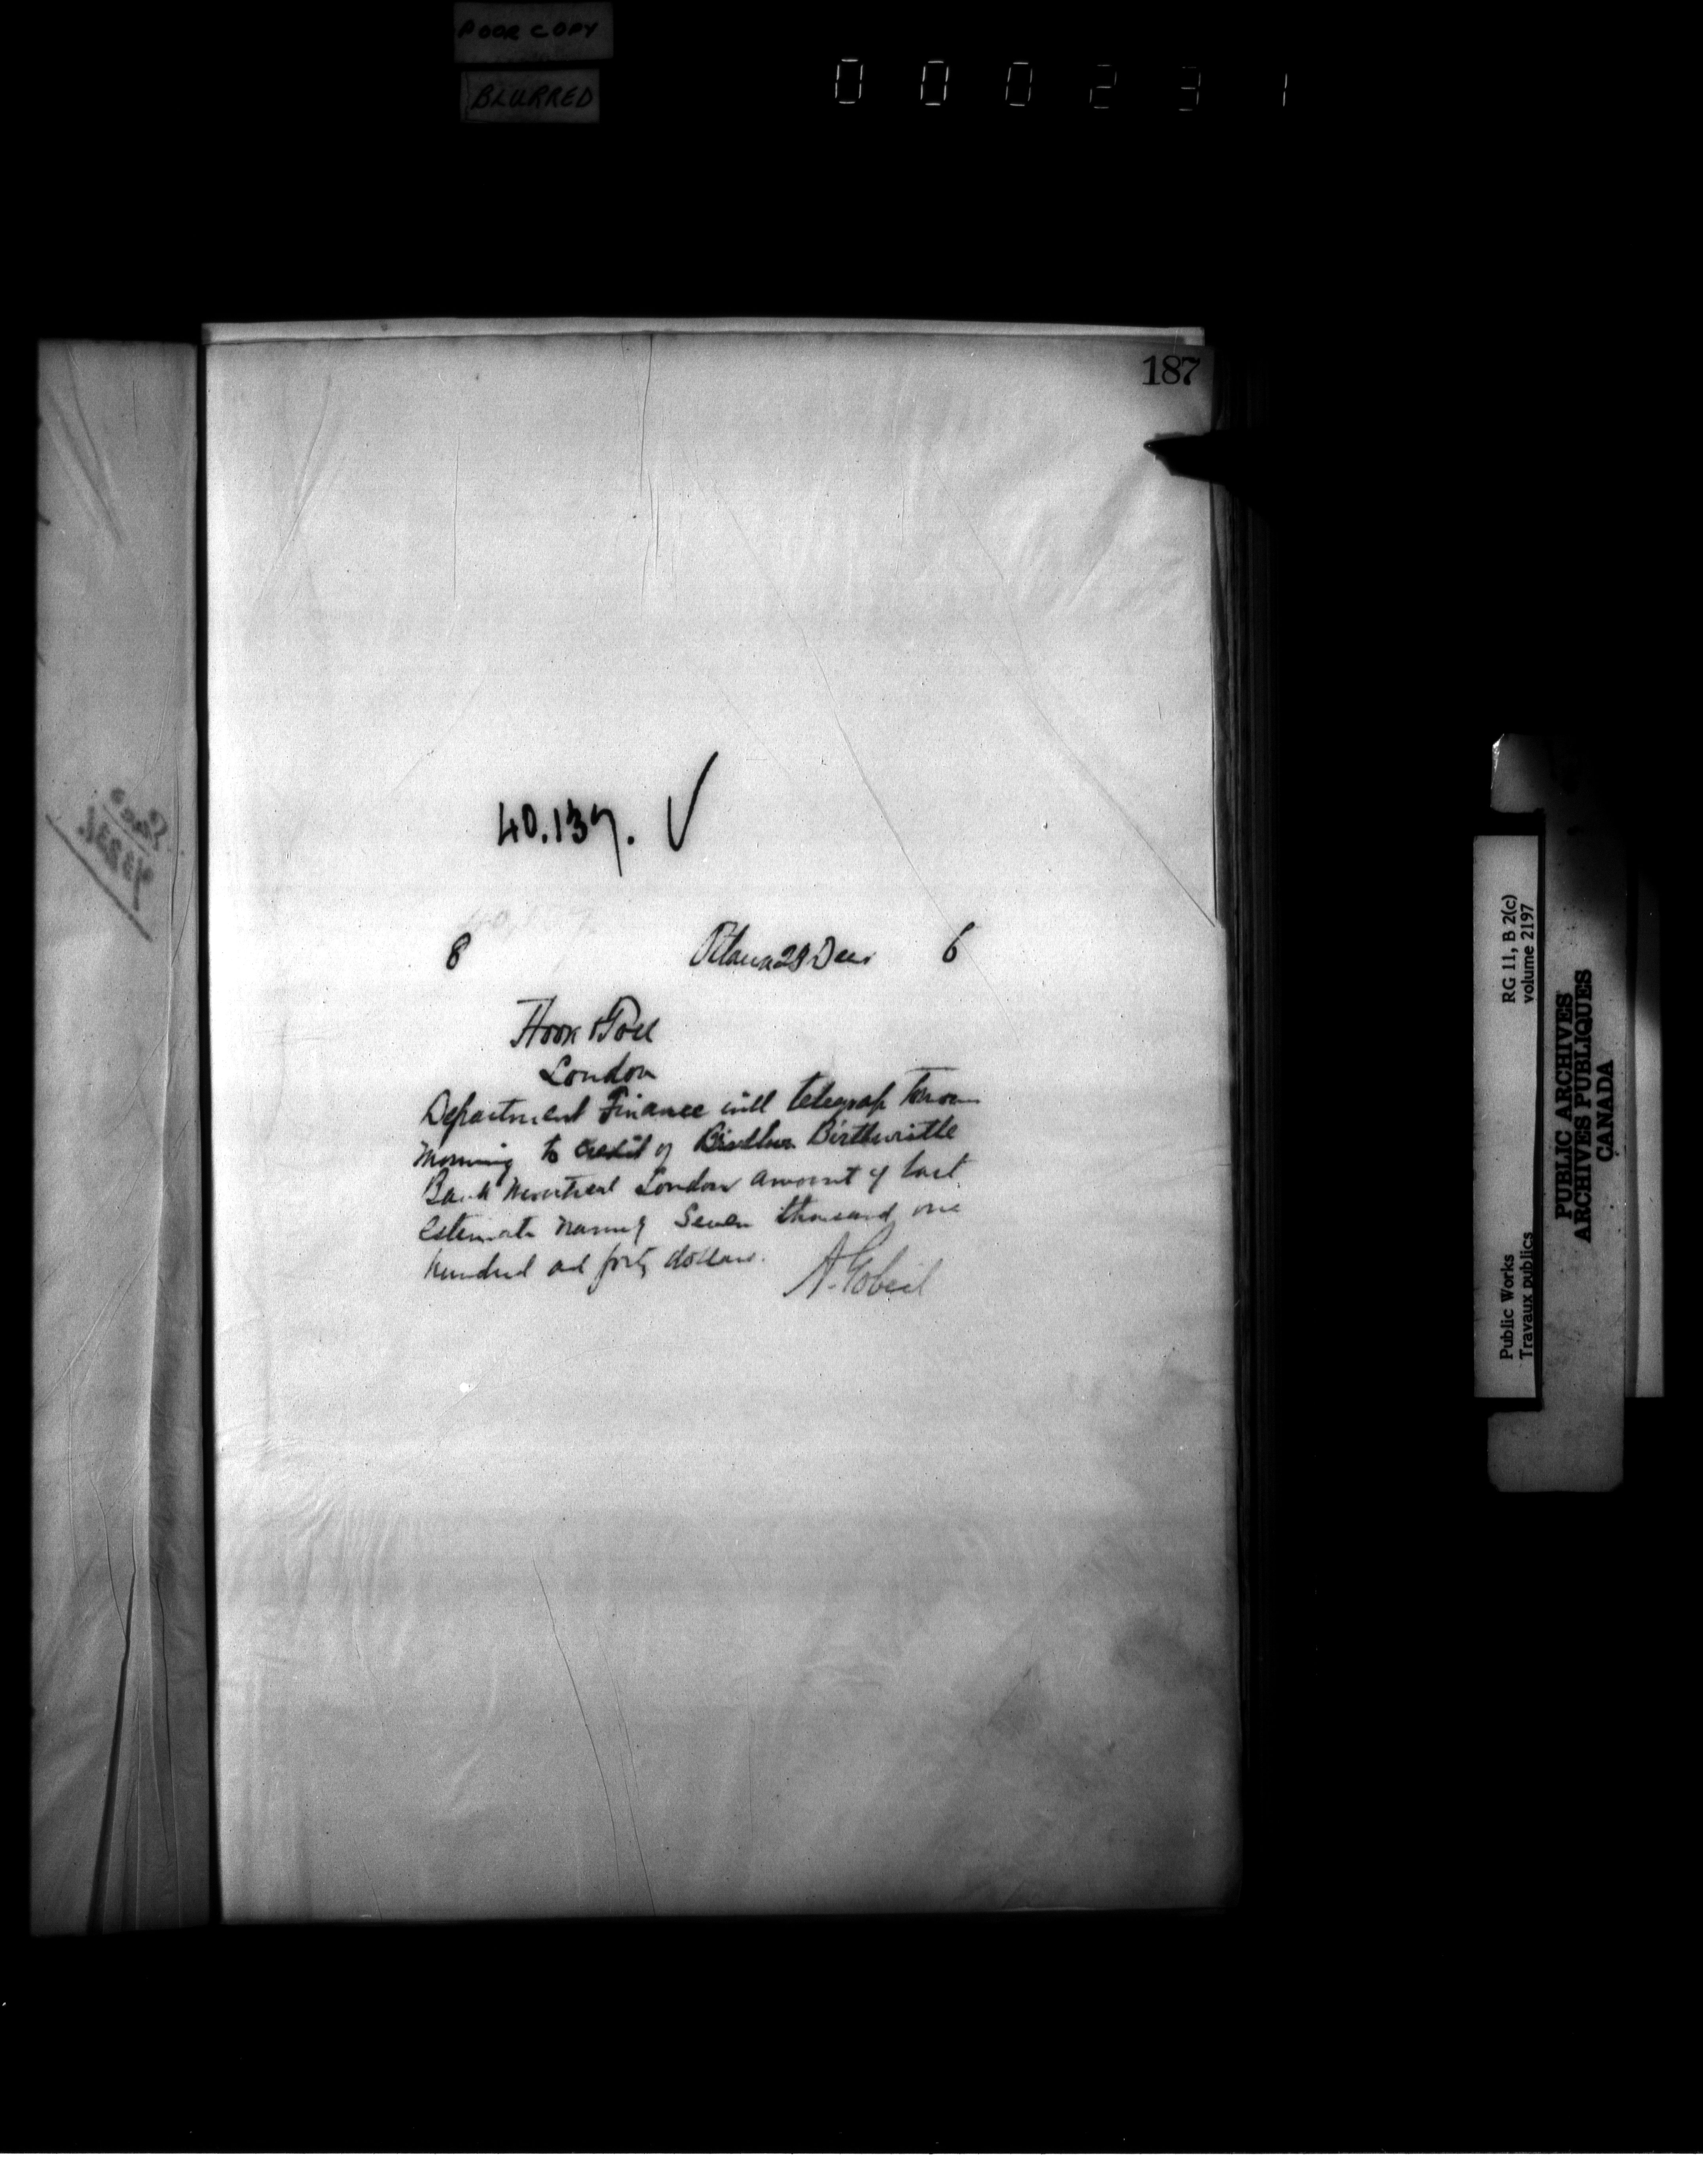 POOR COPY
BLURRED
0 0 0 2 3 1
187
40.137. ✓
8 Ottawa 28 Decr 6
Hook & Toll
London
Department Finance will telegraph tomorrow
morning to credit of Birthwistle
Bank Montreal London amount of last
estimate namely Seven thousand one
hundred and forty dollars.
A. Gobeil
RG 11, B 2(c)
volume 2197
Public Works
Travaux publics
PUBLIC ARCHIVES
ARCHIVES PUBLIQUES
CANADA